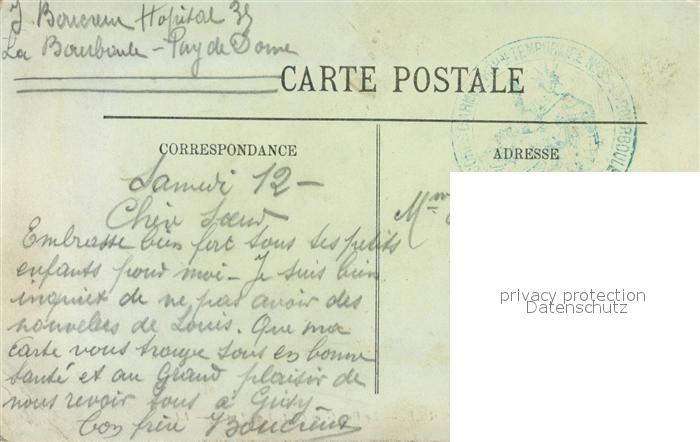 J. Boucreux Hopital 35
La Bourboule - Puy de Dome
CARTE POSTALE
CORRESPONDANCE
ADRESSE
Samedi 12 -
Chère Sœur
Mme
Embrasse bien fort tous tes petits
enfants pour moi - Je suis bien
inquiet de ne pas avoir des
nouvelles de Louis. Que ma
carte vous trouve tous en bonne
santé et au Grand plaisir de
nous revoir tous à
ton frère Boucreux
privacy protection
Datenschutz